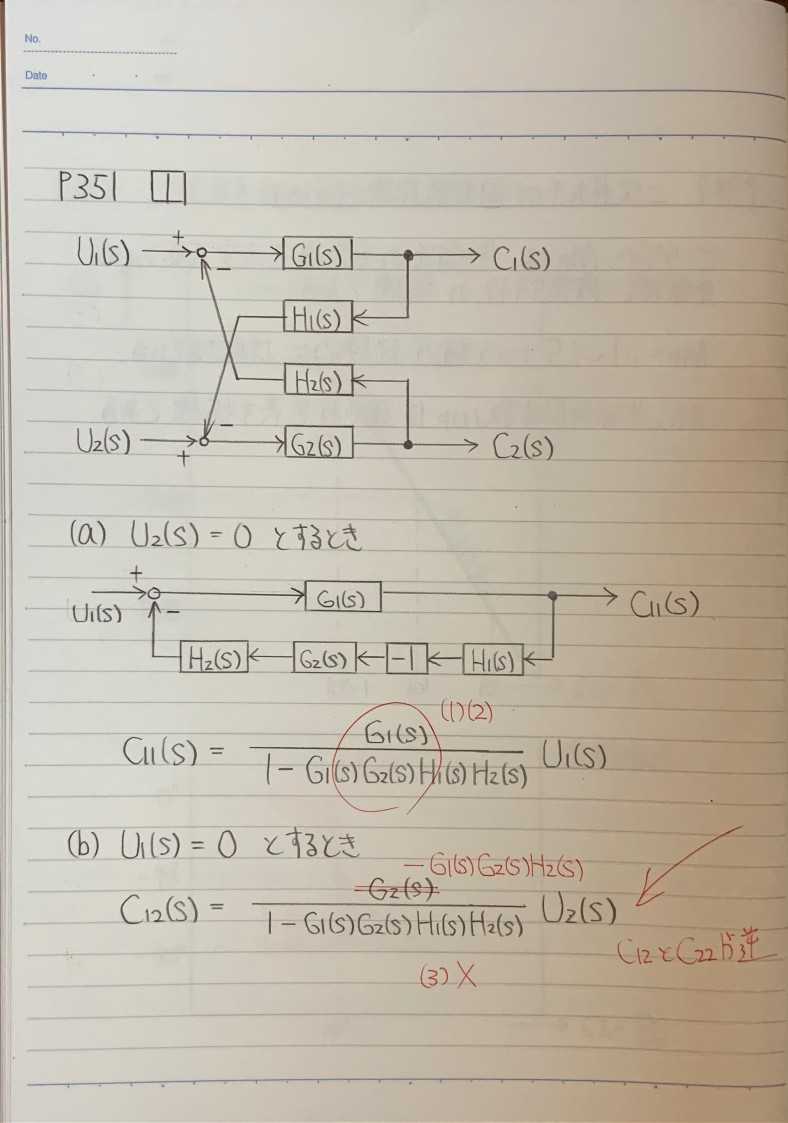 No.
Date
P351 1
U1(s) + − G1(s) C1(s)
H1(s)
H2(s)
U2(s) + − G2(s) C2(s)
(a) U2(s) = 0 とするとき
+
U1(s) − G1(s) C11(s)
H2(s) G2(s) −1 H1(s)
(1)(2)
G1(s)
C11(s) = U1(s)
1 − G1(s)G2(s)H1(s)H2(s)
(b) U1(s) = 0 とするとき
−G1(s)G2(s)H2(s)
G2(s)
C12(s) = U2(s)
1 − G1(s)G2(s)H1(s)H2(s)
C12とC22が逆
(3)×